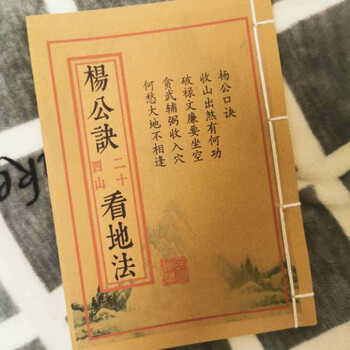 杨公口诀
收山出煞有何功
破禄文廉要坐空
贪武辅弼收入穴
何愁大地不相逢
楊公訣
二十
四山
看地法